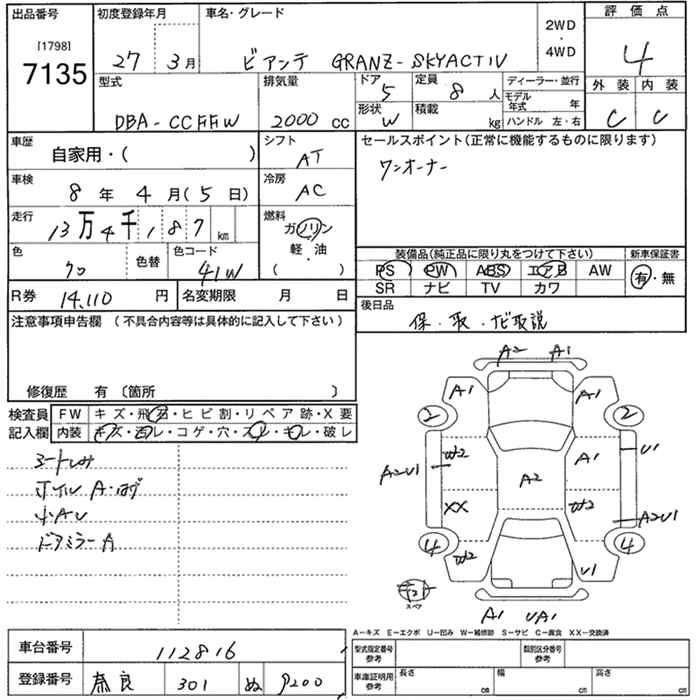 出品番号 初度登録年月 車名・グレード 評価点
[1798] 7135 27 3月 ビアンテ GRANZ-SKYACTIV 2WD・4WD 4
型式 排気量 ドア 5 定員 8人 ディーラー・並行 外装 内装
DBA-CCFFW 2000cc 形状 W 積載 kg モデル年式 年 C C
ハンドル 左・右
車歴 シフト セールスポイント(正常に機能するものに限ります)
自家用・( ) AT ワンオーナー
車検 冷房
8年4月(5日) AC
走行 燃料
13万4千187km ガソリン
色 色替 色コード 軽・油 装備品(純正品に限り丸をつけて下さい) 新車保証書
クロ 41W ( ) PS PW ABS エアB AW 有・無
R券 14,110円 名変期限 月 日 SR ナビ TV カワ
注意事項申告欄(不具合内容等は具体的に記入して下さい) 後日品
保・取・ナビ取説
修復歴 有〔箇所 〕
検査員 FW キズ・飛石・ヒビ割・リペア跡・X要
記入欄 内装 キズ・汚レ・コゲ・穴・スレ・キレ・破レ
シートしみ
ホイル A・ハゲ
小AU
ドアミラーA
A2 A1
A1 A1
2 2
U1
A2U1 W2 A2 A1
XX W2 A2U1
4 W2 U1 4
スペア A1 UA1
A-キズ E-エクボ U-凹み W-補修跡 S-サビ C-腐食 XX-交換済
車台番号 112816 型式指定番号 参考 類別区分番号 参考
登録番号 奈良 301 ぬ 9200 車庫証明用 参考 長さ cm 幅 cm 高さ cm